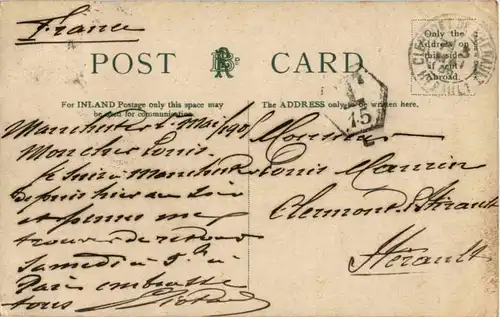 France
POST CARD
Only the
Address on
this side
if sent
Abroad.
For INLAND Postage only this space may
be used for communication.
The ADDRESS only to be written here.
15
E
Manchester 1 Mai 190
Mon cher Louis
Je suis à Manchester
depuis hier au soir
et pense me
trouver de retour
Samedi à 5h à
Paris embrasse
tous
Monsieur
Louis Maurin
Clermont l'Hérault
Hérault